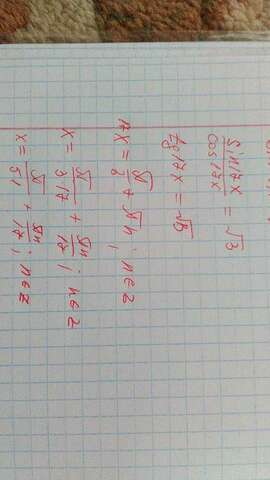 sin17x/cos17x = √3
tg17x = √3
17x = π/3 + πn; n∈z
x = π/3·17 + πn/17; n∈z
x = π/51 + πn/17; n∈z